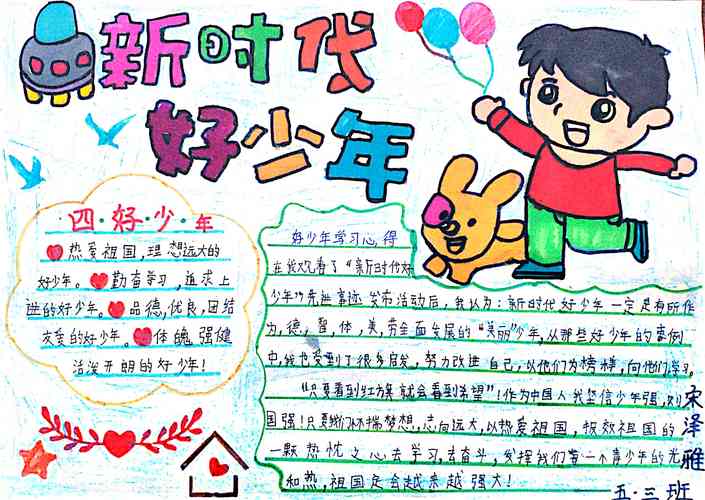 新时代
好少年
四·好·少·年
热爱祖国，理想远大的
好少年。勤奋学习，追求上
进的好少年。品德，优良，团结
友爱的好少年。体魄强健
活泼开朗的好少年！
好少年学习心得
在我观看了“新时代好
少年”先进事迹发布活动后，我认为：新时代好少年一定是有所作
为，德，智，体，美，劳全面发展的“美丽”少年，从那些好少年的事例
中，我也受到了很多启发，努力改进自己，以他们为榜样，向他们学习。
“只要看到红方案就会看到希望”！作为中国人我坚信少年强，则
国强！只要我们怀揣梦想，志向远大，以热爱祖国，报效祖国的
一颗热忱之心去学习，去奋斗，发挥我们每一个青少年的光
和热，祖国定会越来越强大！
宋泽雅
五·三班